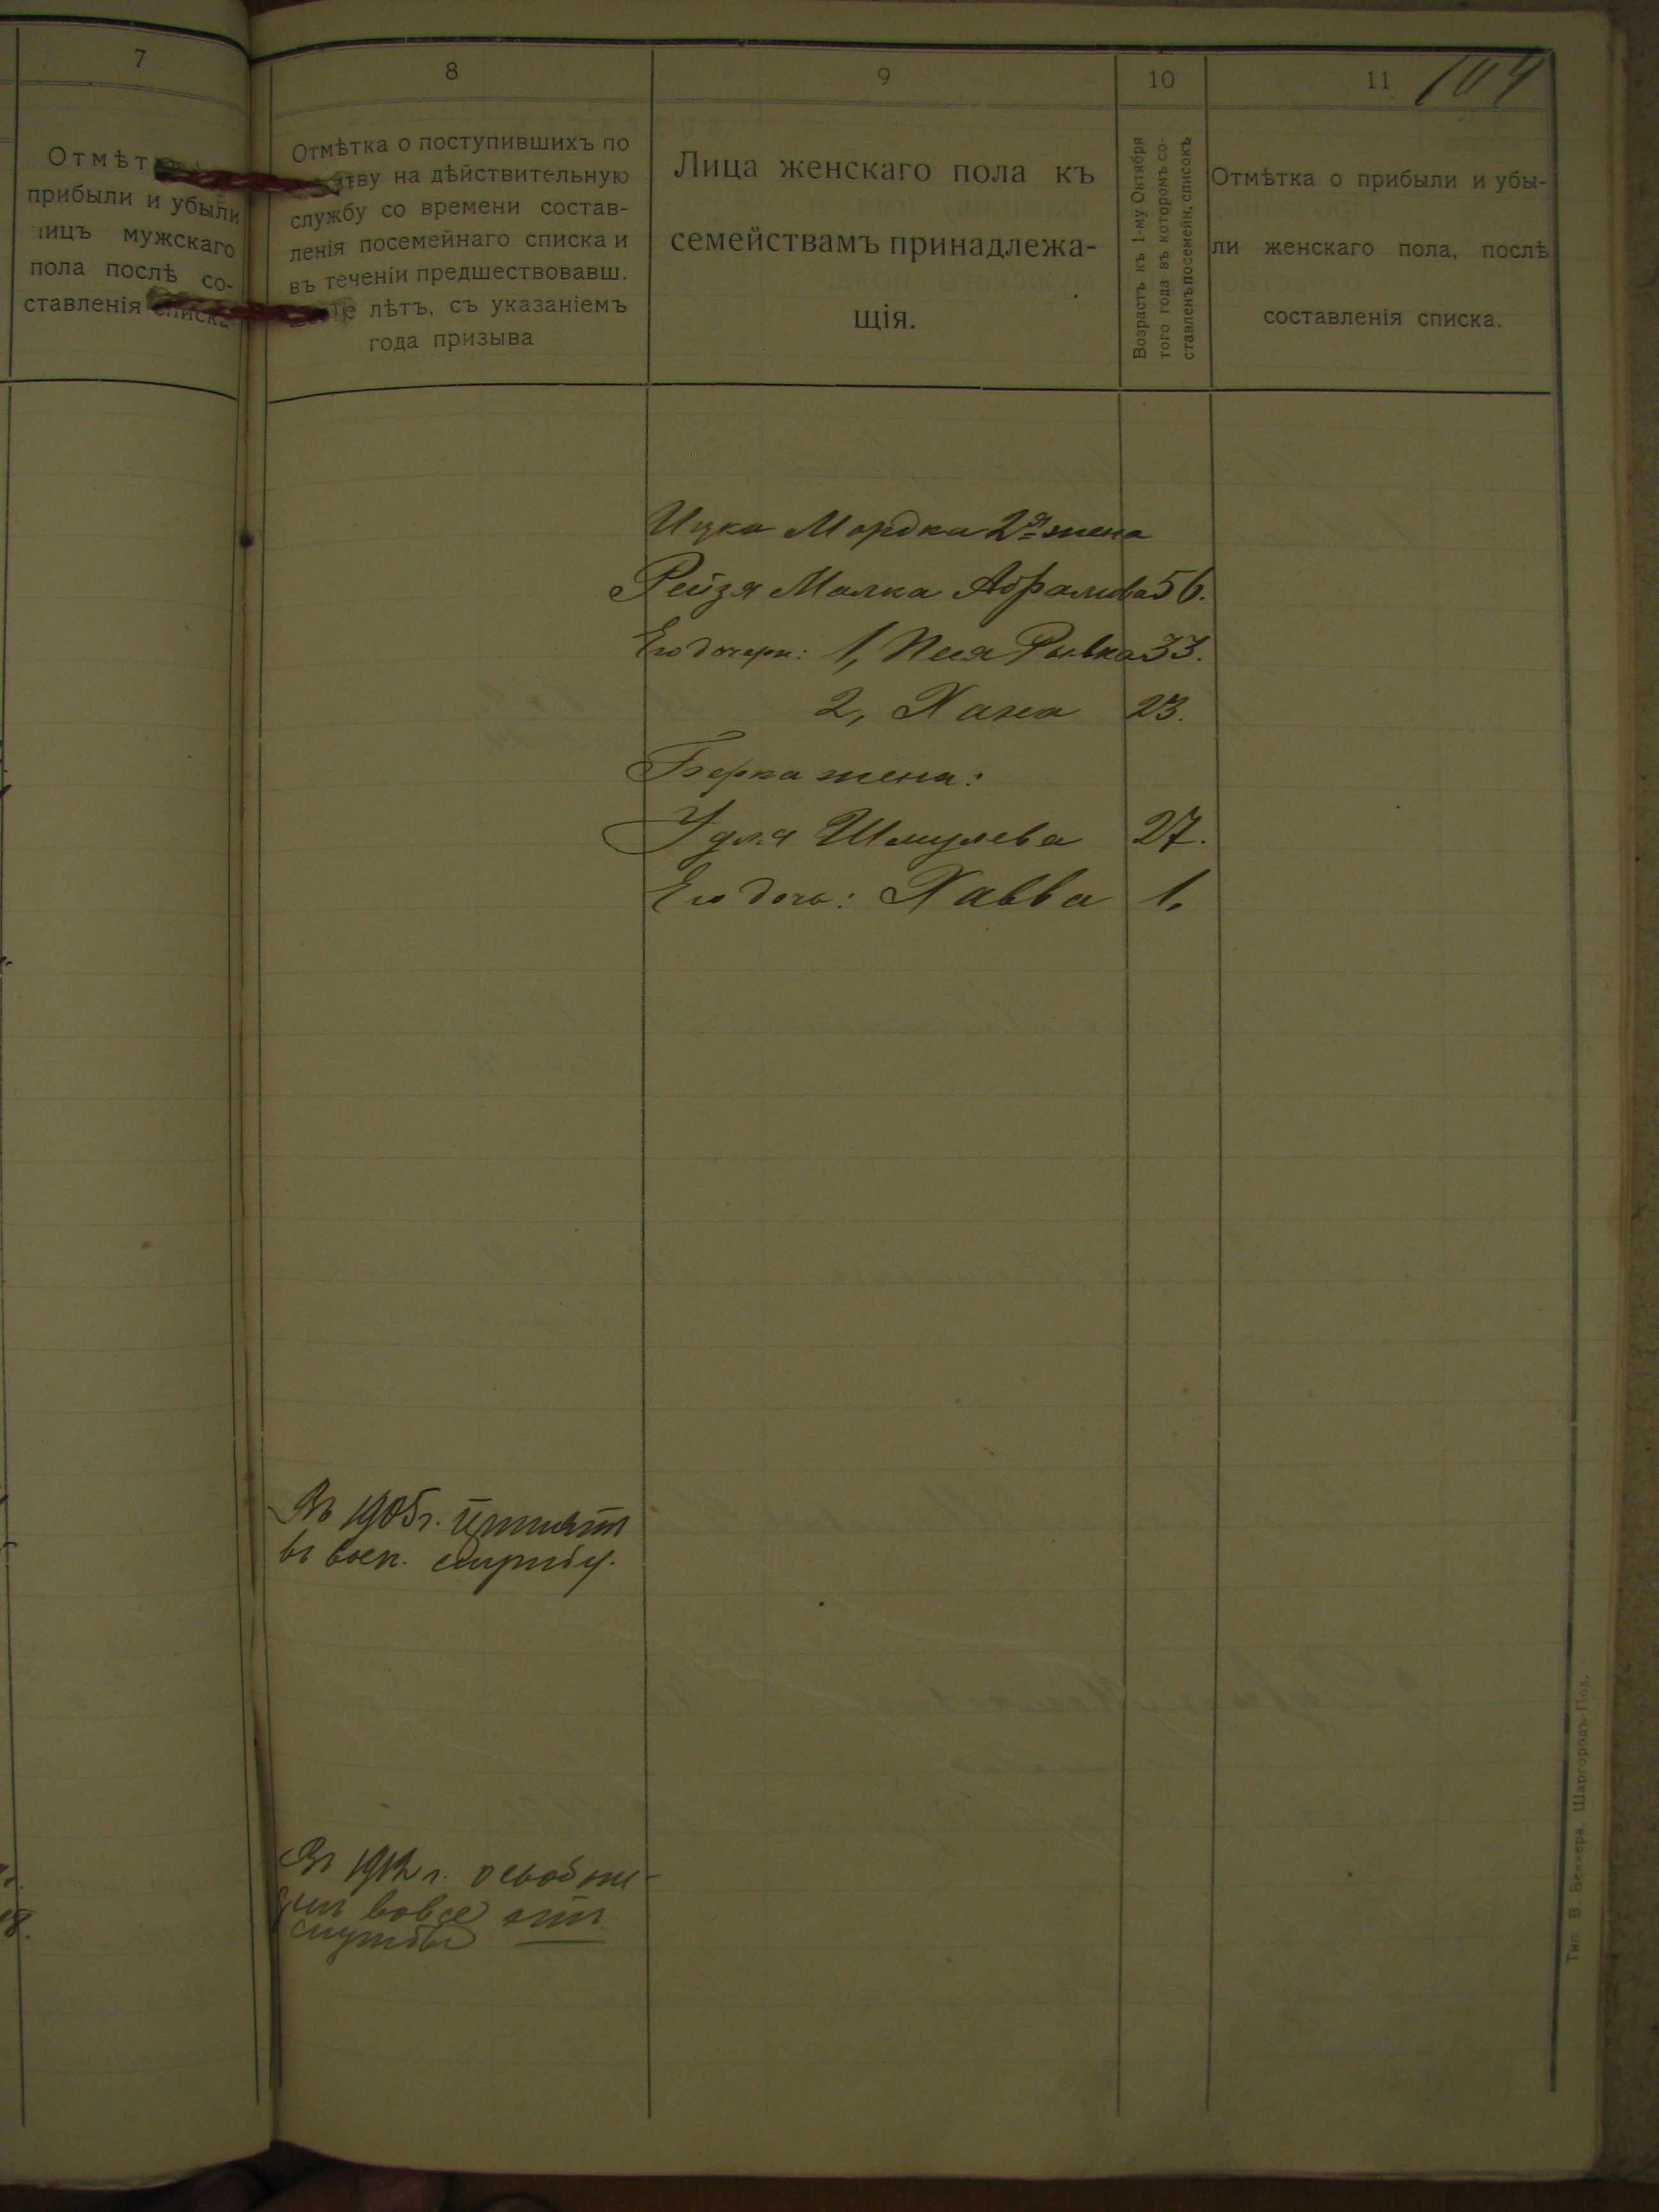 7
Отмѣт
прибыли и убыли
лицъ мужскаго
пола послѣ со-
ставленія списка
8
Отмѣтка о поступившихъ по
тву на дѣйствительную
службу со времени состав-
ленія посемейнаго списка и
въ теченіи предшествовавш.
лѣтъ, съ указаніемъ
года призыва
9
Лица женскаго пола къ
семействамъ принадлежа-
щія.
10
Возрастъ къ 1-му Октября
того года въ которомъ со-
ставленъ посемейн. списокъ
11
104
Отмѣтка о прибыли и убы-
ли женскаго пола, послѣ
составленія списка.
Ицка Мордка 2я жена
Рейзя Малка Абрамова 56.
Его дочери: 1, Песя Рывка 33.
2, Хана 23.
Берка жена:
Удля Шмулева 27.
Его дочь: Хавва 1.
Въ 1905 г. принятъ
въ воен. службу.
Въ 1912 г. освобож-
денъ вовсе отъ
службы
Тип. В. Беккера, Шаргородъ Под.